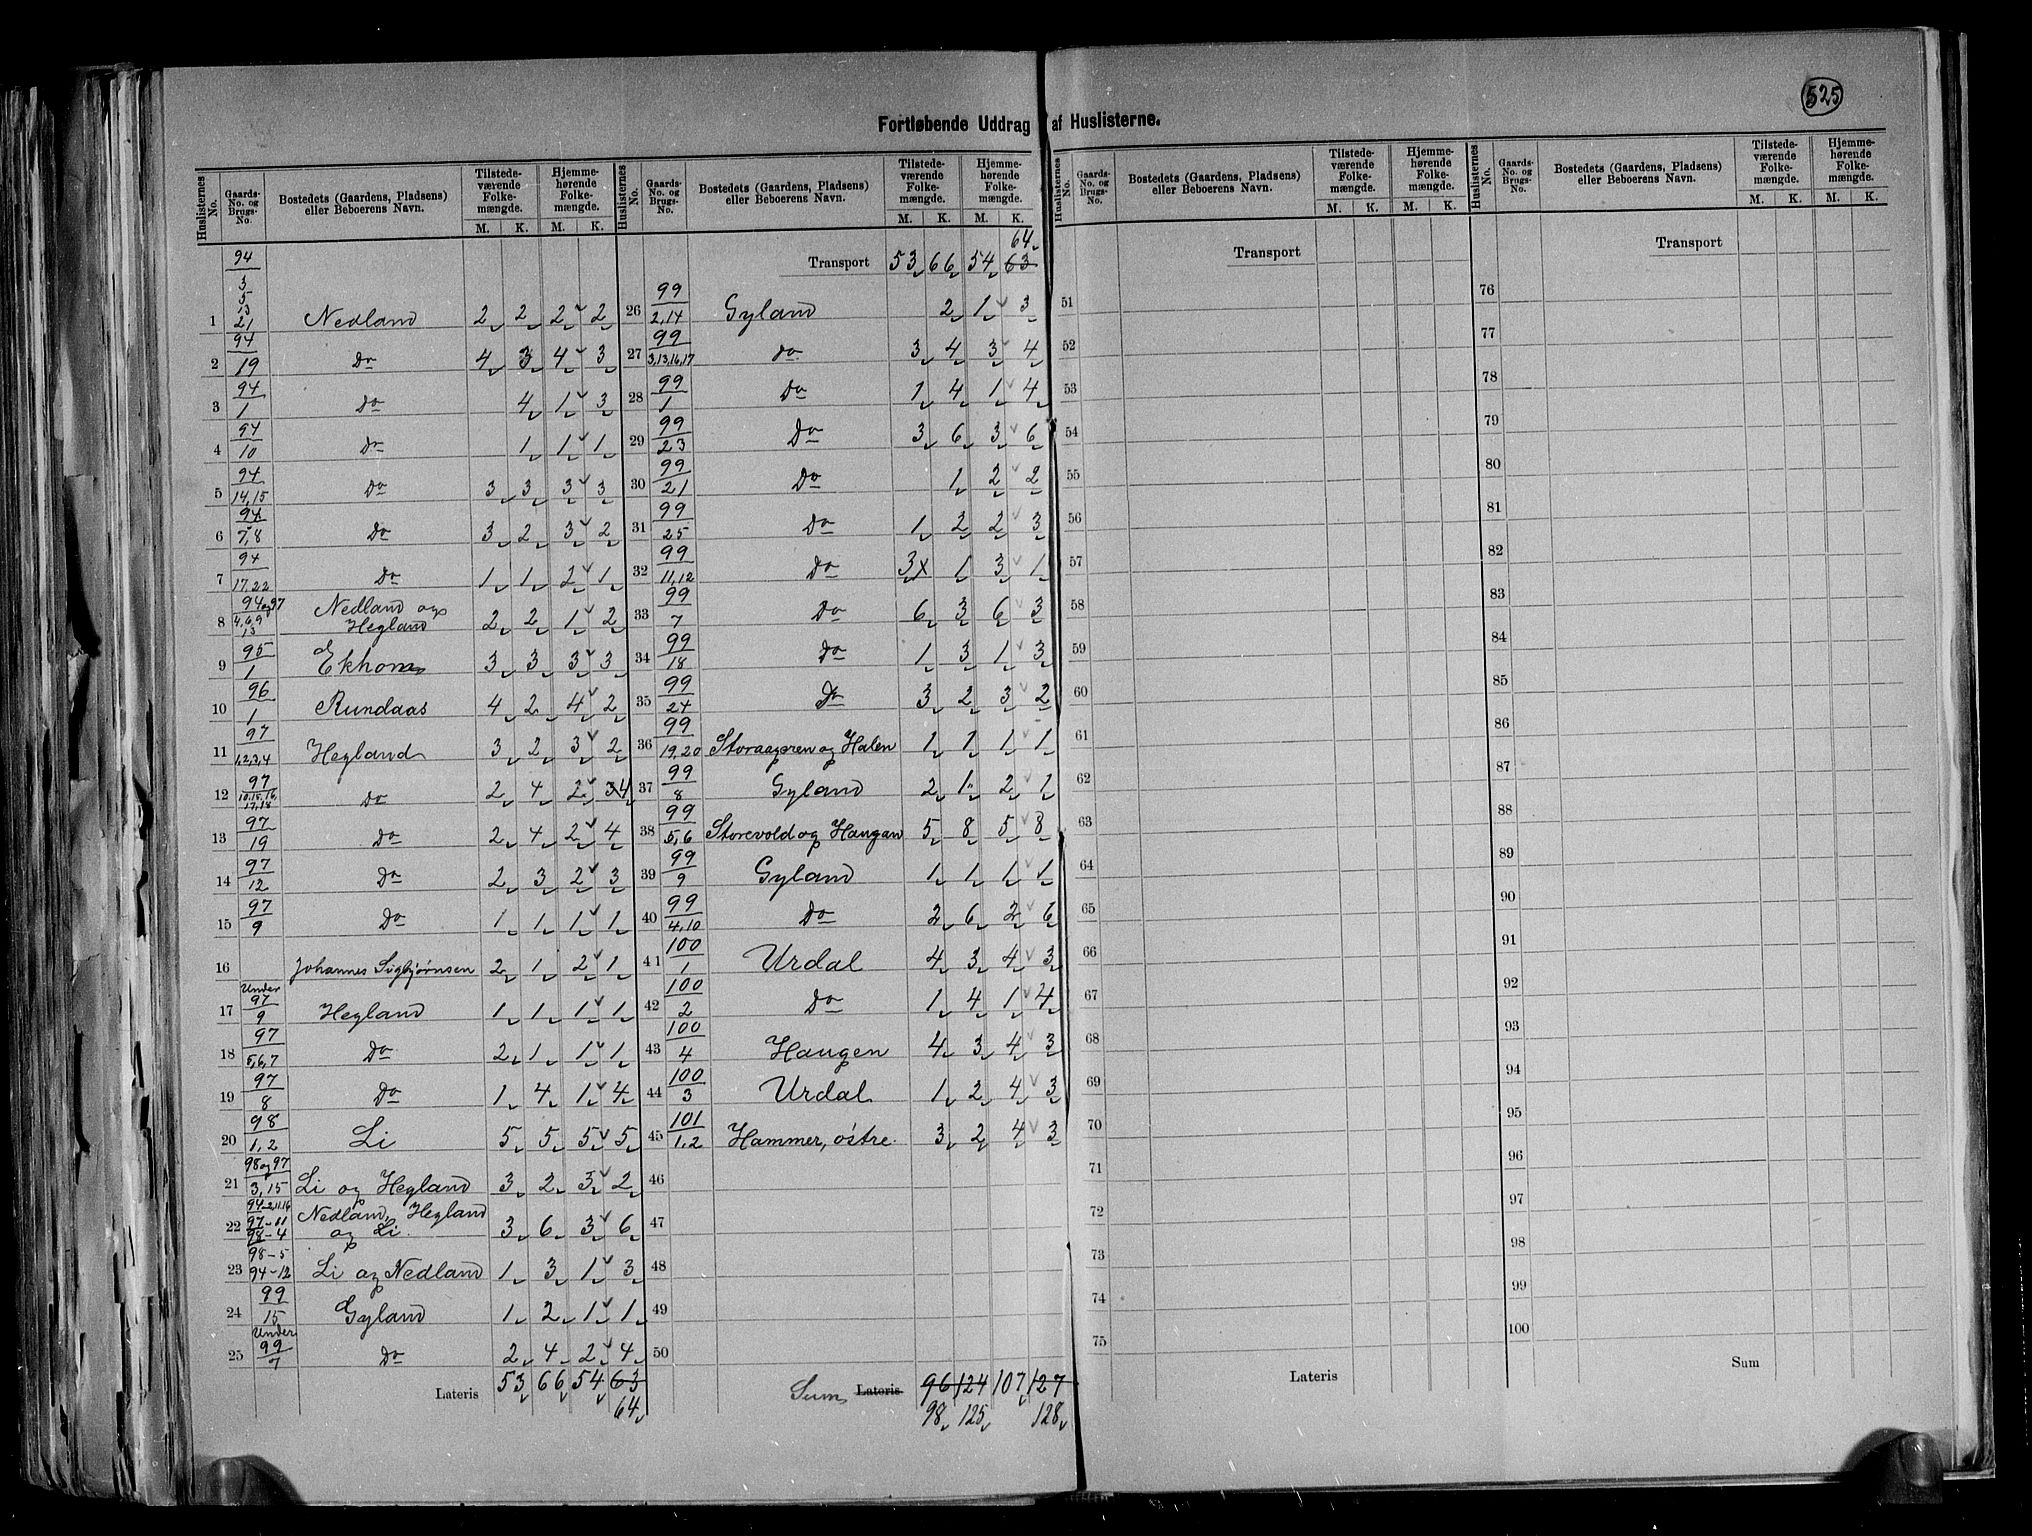 525
Fortløbende Uddrag af Huslisterne.
Huslisternes No. Gaards-No. og Brugs-No. Bostedets (Gaardens, Pladsens) eller Beboerens Navn. Tilstedeværende Folkemængde. M. K. Hjemmehørende Folkemængde. M. K.
94
3
5
13
1 21 Nedland 2 2 2 2
2 94/19 Do 4 3 4 3
3 94/1 Do 4 1 3
4 94/10 Do 1 1 1
5 94/14,15 Do 3 3 3 3
6 94/7,8 Do 3 2 3 2
7 94/17,22 Do 1 1 2 1
8 94 og 97/4,6,9 13 Nedland og Hegland 2 2 1 2
9 95/1 Ekhom 3 3 3 3
10 96/1 Rundaas 4 2 4 2
11 97/1,2,3,4 Hegland 3 2 3 2
12 97/10,15,16,17,18 Do 2 4 2 3 4
13 97/19 Do 2 4 2 4
14 97/12 Do 2 3 2 3
15 97/9 Do 1 1 1 1
16 Johannes Sigbjørnsen 2 1 2 1
17 Under 97/9 Hegland 1 1 1 1
18 97/5,6,7 Do 2 1 1 1
19 97/8 Do 1 4 1 4
20 98/1,2 Li 5 5 5 5
21 98 og 97/3,15 Li og Hegland 3 2 3 2
22 94-2,11,16 97-11 98-4 Nedland, Hegland og Li. 3 6 3 6
23 98-5 94-12 Li og Nedland 1 3 1 3
24 99/15 Gyland 1 2 1 1
25 Under 99/7 Do 2 4 2 4
Lateris 53 66 54 63
64
64
Transport 53 66 54 63
26 99/2,14 Gyland 2 1 3
27 99/3,13,16,17 do 3 4 3 4
28 99/1 Do 1 4 1 4
29 99/23 Do 3 6 3 6
30 99/21 Do 1 2 2
31 99/25 Do 1 2 2 3
32 99/11,12 Do 3x 1 3 1
33 99/7 Do 6 3 6 3
34 99/18 Do 1 3 1 3
35 99/24 Do 3 2 3 2
36 99/19,20 Storaageren og Halen 1 1 1 1
37 99/8 Gyland 2 1 2 1
38 99/5,6 Storevold og Haugan 5 8 5 8
39 99/9 Gyland 1 1 1 1
40 99/4,10 Do 2 6 2 6
41 100/1 Urdal 4 3 4 3
42 100/2 Do 1 4 1 4
43 100/4 Haugen 4 3 4 3
44 100/3 Urdal 1 2 4 3
45 101/1,2 Hammer, østre. 3 2 4 3
46
47
48
49
50
Sum Lateris 96 124 107 127
98 125 128
Huslisternes No. Gaards-No. og Brugs-No. Bostedets (Gaardens, Pladsens) eller Beboerens Navn. Tilstedeværende Folkemængde. M. K. Hjemmehørende Folkemængde. M. K.
Transport
51
52
53
54
55
56
57
58
59
60
61
62
63
64
65
66
67
68
69
70
71
72
73
74
75
Lateris
Transport
76
77
78
79
80
81
82
83
84
85
86
87
88
89
90
91
92
93
94
95
96
97
98
99
100
Sum